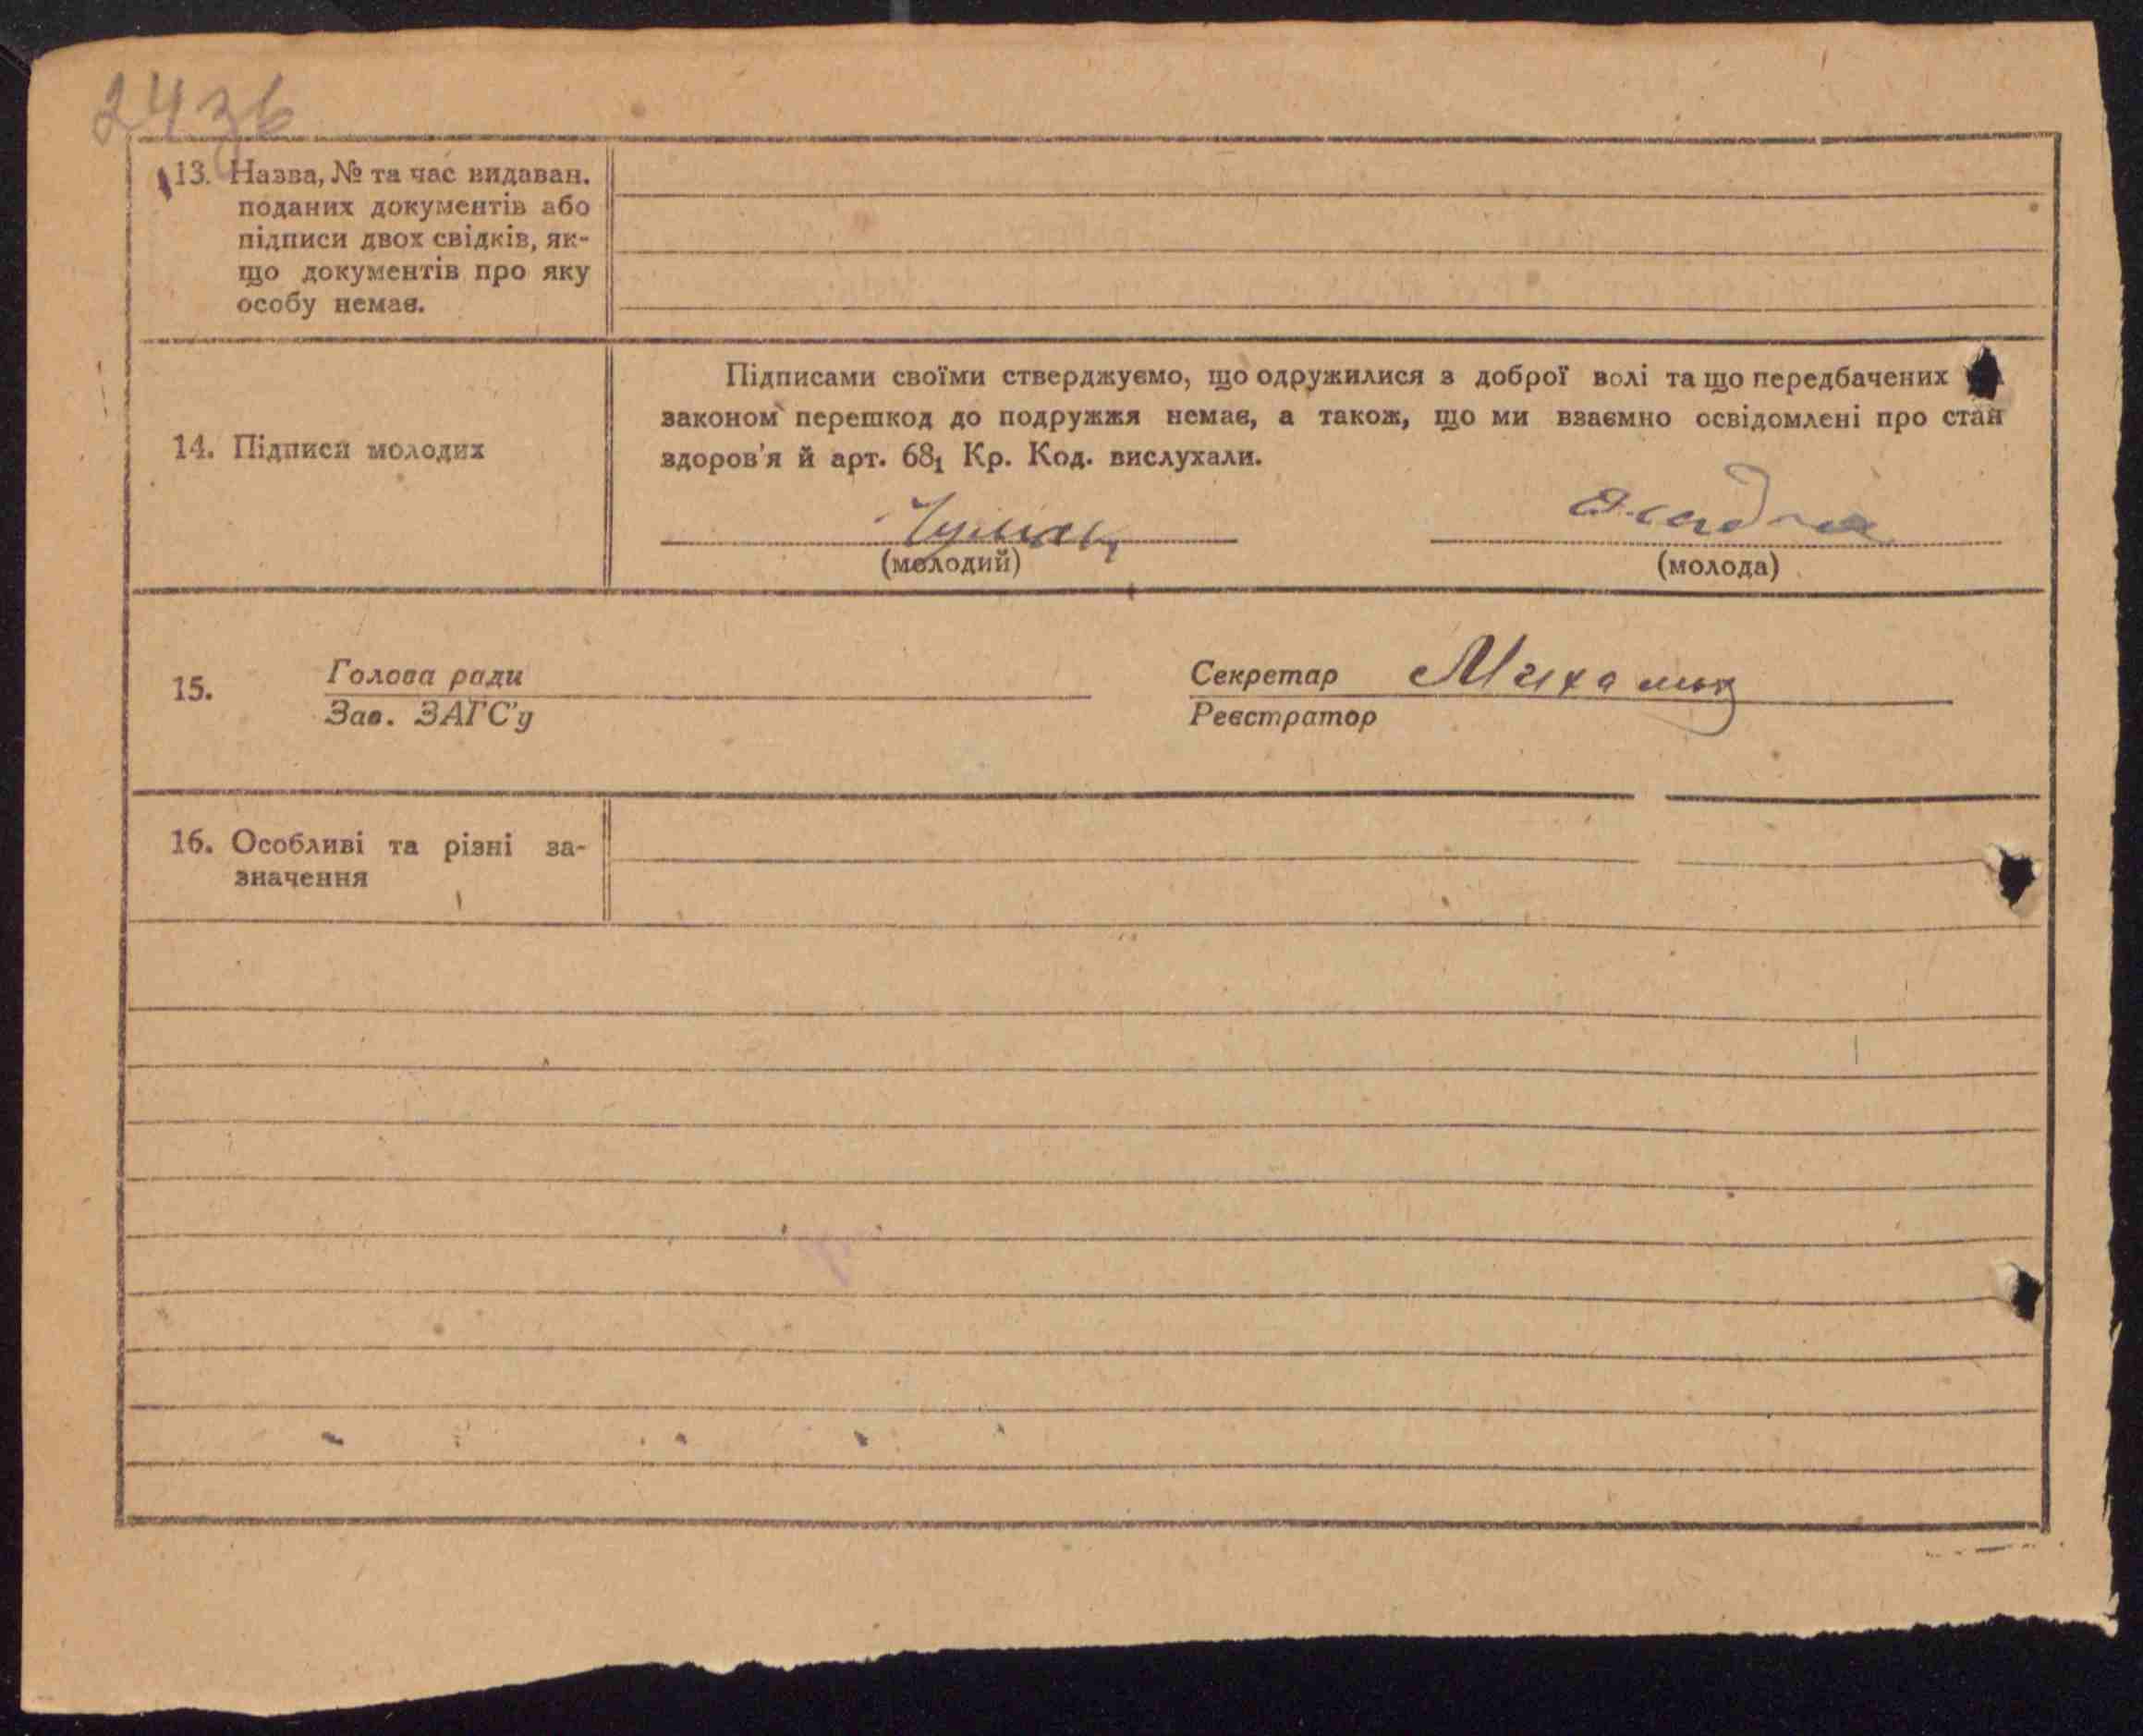 24зв
13. Назва, № та час видаван.
поданих документів або
підписи двох свідків, як-
що документів про яку
особу немає.
14. Підписи молодих
Підписами своїми стверджуємо, що одружилися з доброї волі та що передбачених
законом перешкод до подружжя немає, а також, що ми взаємно освідомлені про стан
здоров'я й арт. 68₁ Кр. Код. вислухали.
(молодий)
(молода)
15.
Голова ради
Зав. ЗАГС'у
Секретар
Реєстратор
16. Особливі та різні за-
значення